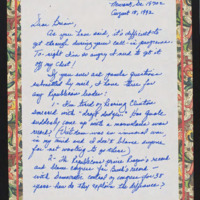 August 18, 1992
Dear Brian,
As you have said, it's difficult to
get through during your call-in programs.
So might I'm to try it and to get it
off my chest!
If your ever ask popular questions
submitted by mail I have three for
any Republican leader!
1- I'm tired of hearing Clinton
smeared with "draft dodger". Dan Quayle
suddenly came up with a marvelous war
record? Vietnam was an immoral war
in my mind and I don't blame anyone
for not wanting to go there!
2- The Republicans praise Reagan's record
and blame Congress for Bush's record -
with Democratic control of congress for 38
years how do they explain the difference?